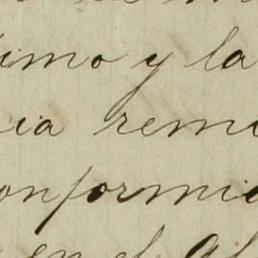 imo y la
cia remi
onformid
en el